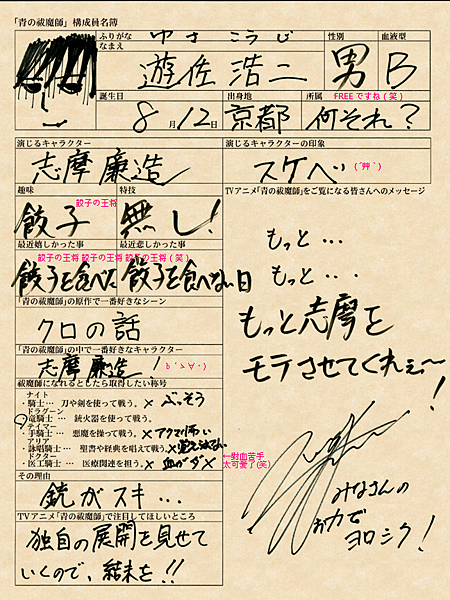 「青の祓魔師」構成員名簿
ふりがな
なまえ
ゆさ こうじ
遊佐 浩二
性別
男
血液型
B
誕生日
8月12日
出身地
京都
所属
FREEですね(笑)
何それ?
演じるキャラクター
志摩 廉造
演じるキャラクターの印象
スケベ(´艸`)
趣味
餃子の王将
餃子
特技
無し!
最近嬉しかった事
餃子の王将 餃子の王将 餃子の王将(笑)
餃子を食べた
最近悲しかった事
餃子を食べない日
「青の祓魔師」の原作で一番好きなシーン
クロの話
「青の祓魔師」の中で一番好きなキャラクター
志摩 廉造!
祓魔師になれるとしたら取得したい称号
ナイト
・騎士… 刀や剣を使って戦う。× ぶっそう
ドラグーン
○竜騎士… 銃火器を使って戦う。
テイマー
・手騎士… 悪魔を操って戦う。× アクマ怖い
アリア
・詠唱騎士… 聖書や経典を唱えて戦う。× 覚えられない
ドクター
・医工騎士… 医療関連を担う。× 血がダメ
←對血苦手
太可愛了(笑)
その理由
銃がスキ…
TVアニメ「青の祓魔師」で注目してほしいところ
独自の展開を見せて
いくので、結末を!!
TVアニメ「青の祓魔師」をご覧になる皆さんへのメッセージ
もっと…
もっと…
もっと志摩を
モテさせてくれぇ〜!
みなさんの
お力で
ヨロシク!